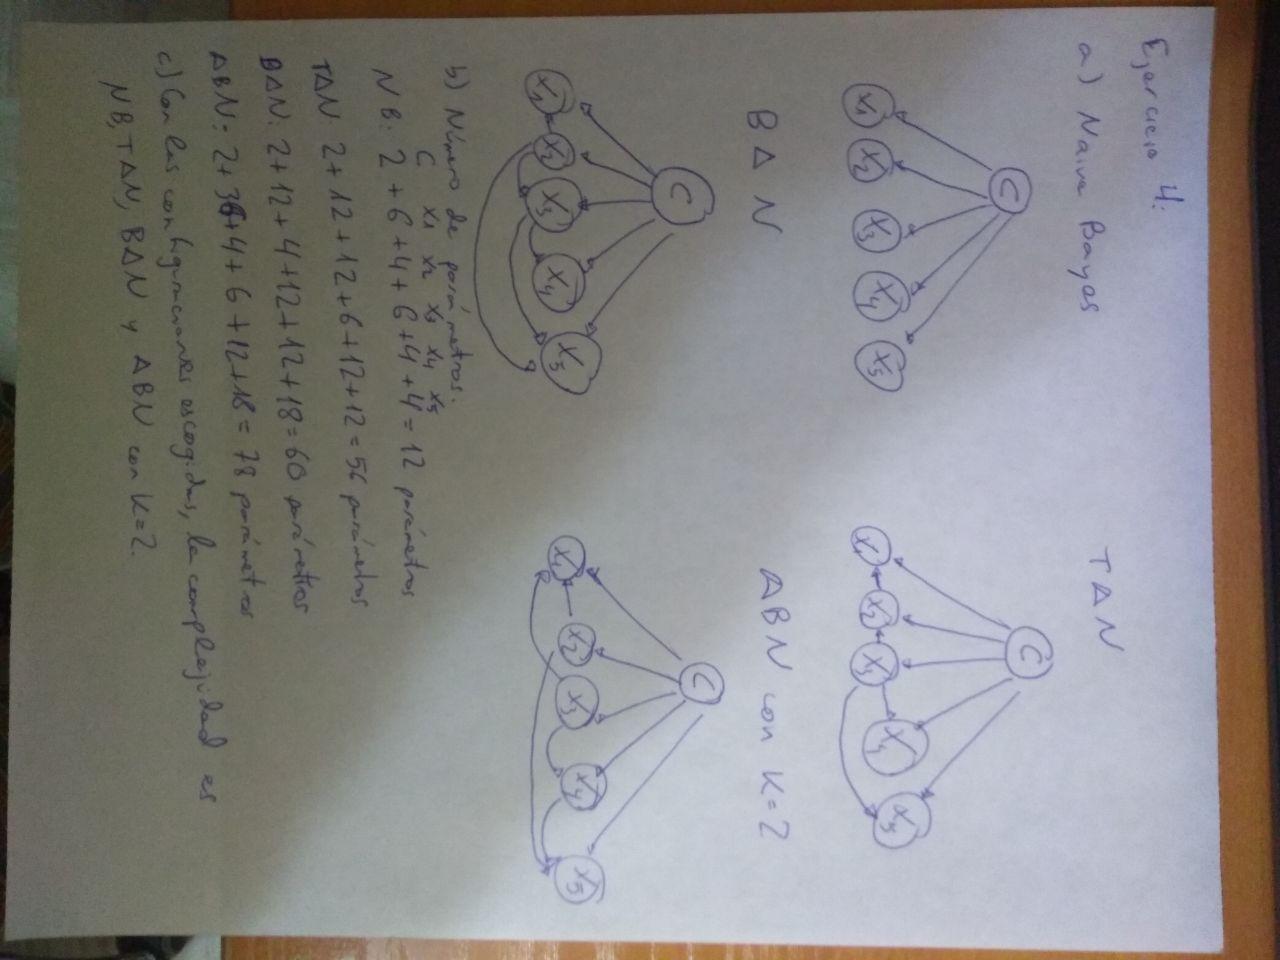 Ejercicio 4:
a) Naive Bayes
TAN
C
C
X1 X2 X3 X4 X5
X1 X2 X3 X4 X5
BAN
ABN con K=2
C
C
X1 X2 X3 X4 X5
X1 X2 X3 X4 X5
b) Número de parámetros.
C X1 X2 X3 X4 X5
NB: 2 + 6 + 4 + 6 + 4 + 4 = 12 parámetros
TAN: 2 + 12 + 12 + 6 + 12 + 12 = 56 parámetros
BAN: 2 + 12 + 4 + 12 + 12 + 18 = 60 parámetros
ABN: 2 + 36 + 4 + 6 + 12 + 18 = 78 parámetros
c) Con las configuraciones escogidas, la complejidad es
NB, TAN, BAN y ABN con K=2.